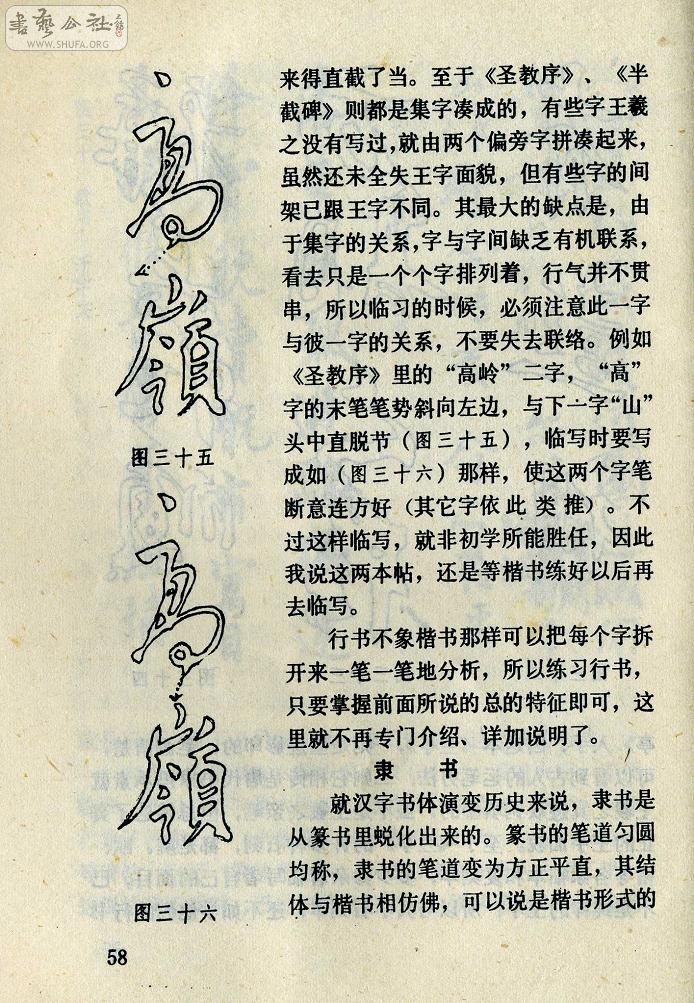 書藝公社
WWW.SHUFA.ORG
高
嶺
图三十五
高
嶺
图三十六
来得直截了当。至于《圣教序》、《半
截碑》则都是集字凑成的，有些字王羲
之没有写过，就由两个偏旁字拼凑起来，
虽然还未全失王字面貌，但有些字的间
架已跟王字不同。其最大的缺点是，由
于集字的关系，字与字间缺乏有机联系，
看去只是一个个字排列着，行气并不贯
串，所以临习的时候，必须注意此一字
与彼一字的关系，不要失去联络。例如
《圣教序》里的“高岭”二字，“高”
字的末笔笔势斜向左边，与下一字“山”
头中直脱节（图三十五），临写时要写
成如（图三十六）那样，使这两个字笔
断意连方好（其它字依此类推）。不
过这样临写，就非初学所能胜任，因此
我说这两本帖，还是等楷书练好以后再
去临写。
行书不象楷书那样可以把每个字拆
开来一笔一笔地分析，所以练习行书，
只要掌握前面所说的总的特征即可，这
里就不再专门介绍、详加说明了。
隶 书
就汉字书体演变历史来说，隶书是
从篆书里蜕化出来的。篆书的笔道匀圆
均称，隶书的笔道变为方正平直，其结
体与楷书相仿佛，可以说是楷书形式的
58